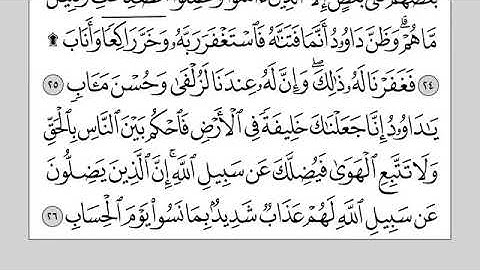 بَعْضُهُمْ عَلَىٰ بَعْضٍ إِلَّا ٱلَّذِينَ ءَامَنُوا۟ وَعَمِلُوا۟ ٱلصَّٰلِحَٰتِ وَقَلِيلٌ
مَّا هُمْ ۗ وَظَنَّ دَاوُۥدُ أَنَّمَا فَتَنَّٰهُ فَٱسْتَغْفَرَ رَبَّهُۥ وَخَرَّ رَاكِعًا وَأَنَابَ ۩
٢٤ فَغَفَرْنَا لَهُۥ ذَٰلِكَ ۖ وَإِنَّ لَهُۥ عِندَنَا لَزُلْفَىٰ وَحُسْنَ مَـَٔابٍ ٢٥
يَٰدَاوُۥدُ إِنَّا جَعَلْنَٰكَ خَلِيفَةً فِى ٱلْأَرْضِ فَٱحْكُم بَيْنَ ٱلنَّاسِ بِٱلْحَقِّ
وَلَا تَتَّبِعِ ٱلْهَوَىٰ فَيُضِلَّكَ عَن سَبِيلِ ٱللَّهِ ۚ إِنَّ ٱلَّذِينَ يَضِلُّونَ
عَن سَبِيلِ ٱللَّهِ لَهُمْ عَذَابٌ شَدِيدٌۢ بِمَا نَسُوا۟ يَوْمَ ٱلْحِسَابِ ٢٦